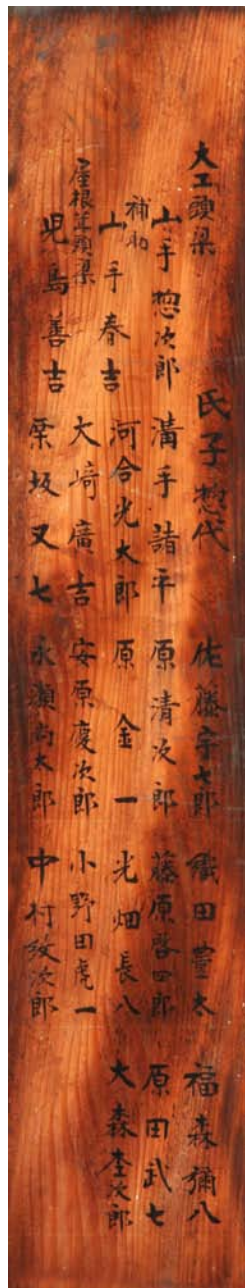 大工頭梁 氏子惣代 佐藤宇七郎 織田豊太 福森彌八
山手惣次郎 溝手諸平 原清次郎 藤原啓四郎 原田武七
補助 山手春吉 河合光太郎 原金一 光畑長八 大森奎次郎
屋根葺頭梁 大崎廣吉 安原慶次郎 小野田虎一
児島善吉 栗坂又七 永瀬尚太郎 中村紋次郎